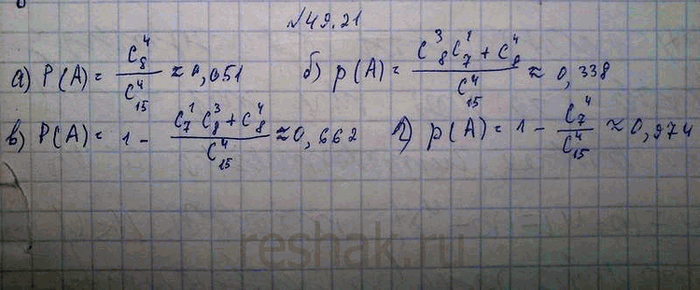 №49.21
а) P(A) = C₈⁴ / C₁₅⁴ ≈ 0,051 б) p(A) = (C₈³ C₇¹ + C₈⁴) / C₁₅⁴ ≈ 0,338
в) P(A) = 1 - (C₇¹ C₈³ + C₈⁴) / C₁₅⁴ ≈ 0,662 г) p(A) = 1 - C₇⁴ / C₁₅⁴ ≈ 0,974
reshak.ru